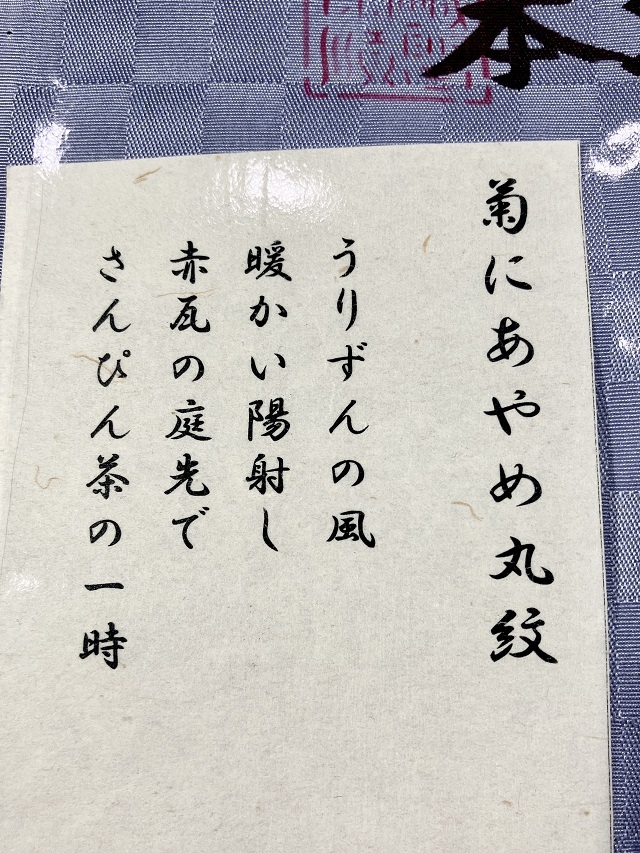 本
菊にあやめ丸紋
うりずんの風
暖かい陽射し
赤瓦の庭先で
さんぴん茶の一時